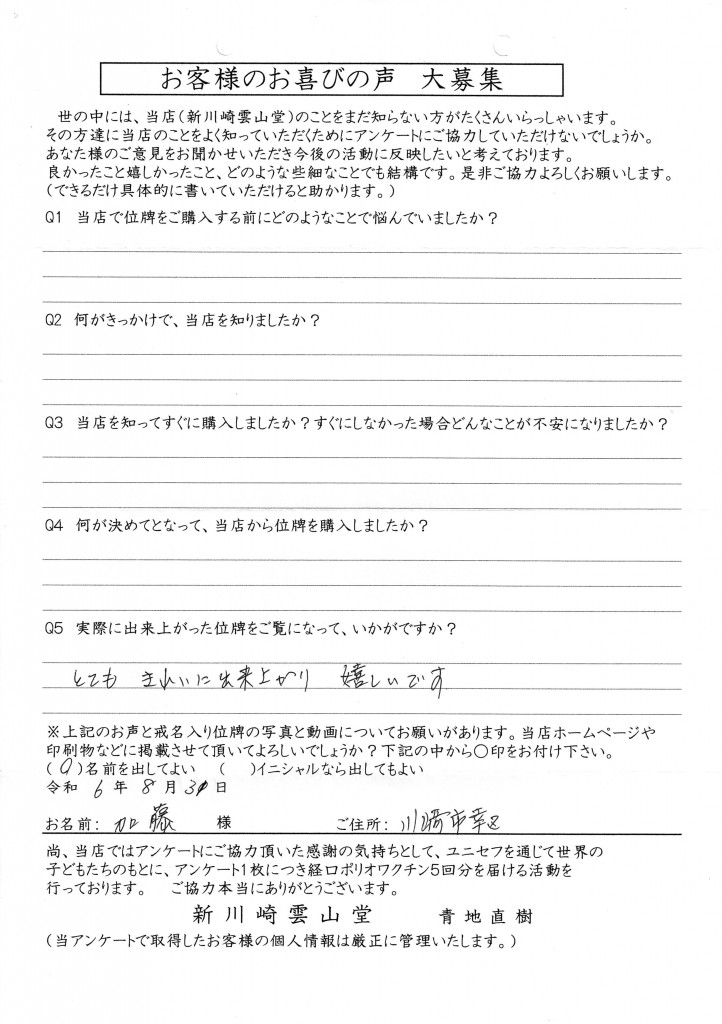 お客様のお喜びの声 大募集
世の中には、当店(新川崎雲山堂)のことをまだ知らない方がたくさんいらっしゃいます。
その方達に当店のことをよく知っていただくためにアンケートにご協力していただけないでしょうか。
あなた様のご意見をお聞かせいただき今後の活動に反映したいと考えております。
良かったこと嬉しかったこと、どのような些細なことでも結構です。是非ご協力よろしくお願いします。
(できるだけ具体的に書いていただけると助かります。)
Q1 当店で位牌をご購入する前にどのようなことで悩んでいましたか?
Q2 何がきっかけで、当店を知りましたか?
Q3 当店を知ってすぐに購入しましたか?すぐにしなかった場合どんなことが不安になりましたか?
Q4 何が決めてとなって、当店から位牌を購入しましたか?
Q5 実際に出来上がった位牌をご覧になって、いかがですか?
とても きれいに出来上がり 嬉しいです
※上記のお声と戒名入り位牌の写真と動画についてお願いがあります。当店ホームページや
印刷物などに掲載させて頂いてよろしいでしょうか?下記の中から○印をお付け下さい。
(○)名前を出してよい ( )イニシャルなら出してもよい
令和 6 年 8 月 日
お名前: 加藤 様 ご住所: 川崎市幸区
尚、当店ではアンケートにご協力頂いた感謝の気持ちとして、ユニセフを通じて世界の
子どもたちのもとに、アンケート1枚につき経口ポリオワクチン5回分を届ける活動を
行っております。 ご協力本当にありがとうございます。
新川崎雲山堂 青地直樹
(当アンケートで取得したお客様の個人情報は厳正に管理いたします。)